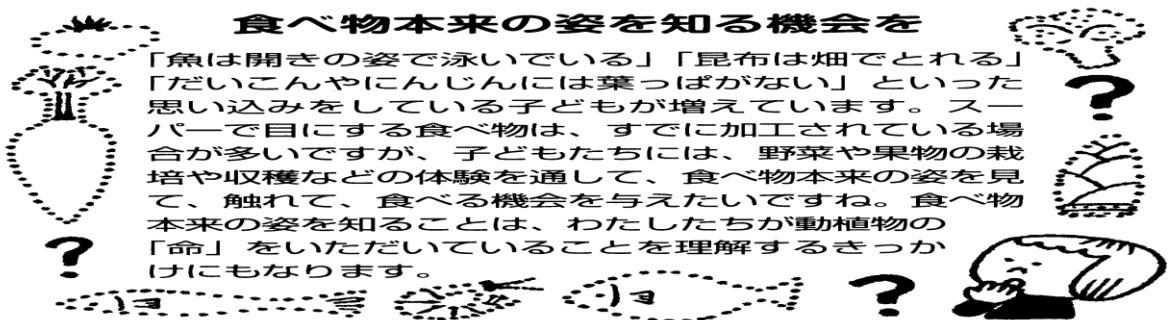 食べ物本来の姿を知る機会を
「魚は開きの姿で泳いでいる」「昆布は畑でとれる」
「だいこんやにんじんには葉っぱがない」といった
思い込みをしている子どもが増えています。スー
パーで目にする食べ物は、すでに加工されている場
合が多いですが、子どもたちには、野菜や果物の栽
培や収穫などの体験を通して、食べ物本来の姿を見
て、触れて、食べる機会を与えたいですね。食べ物
本来の姿を知ることは、わたしたちが動植物の
「命」をいただいていることを理解するきっか
けにもなります。
?
?
?